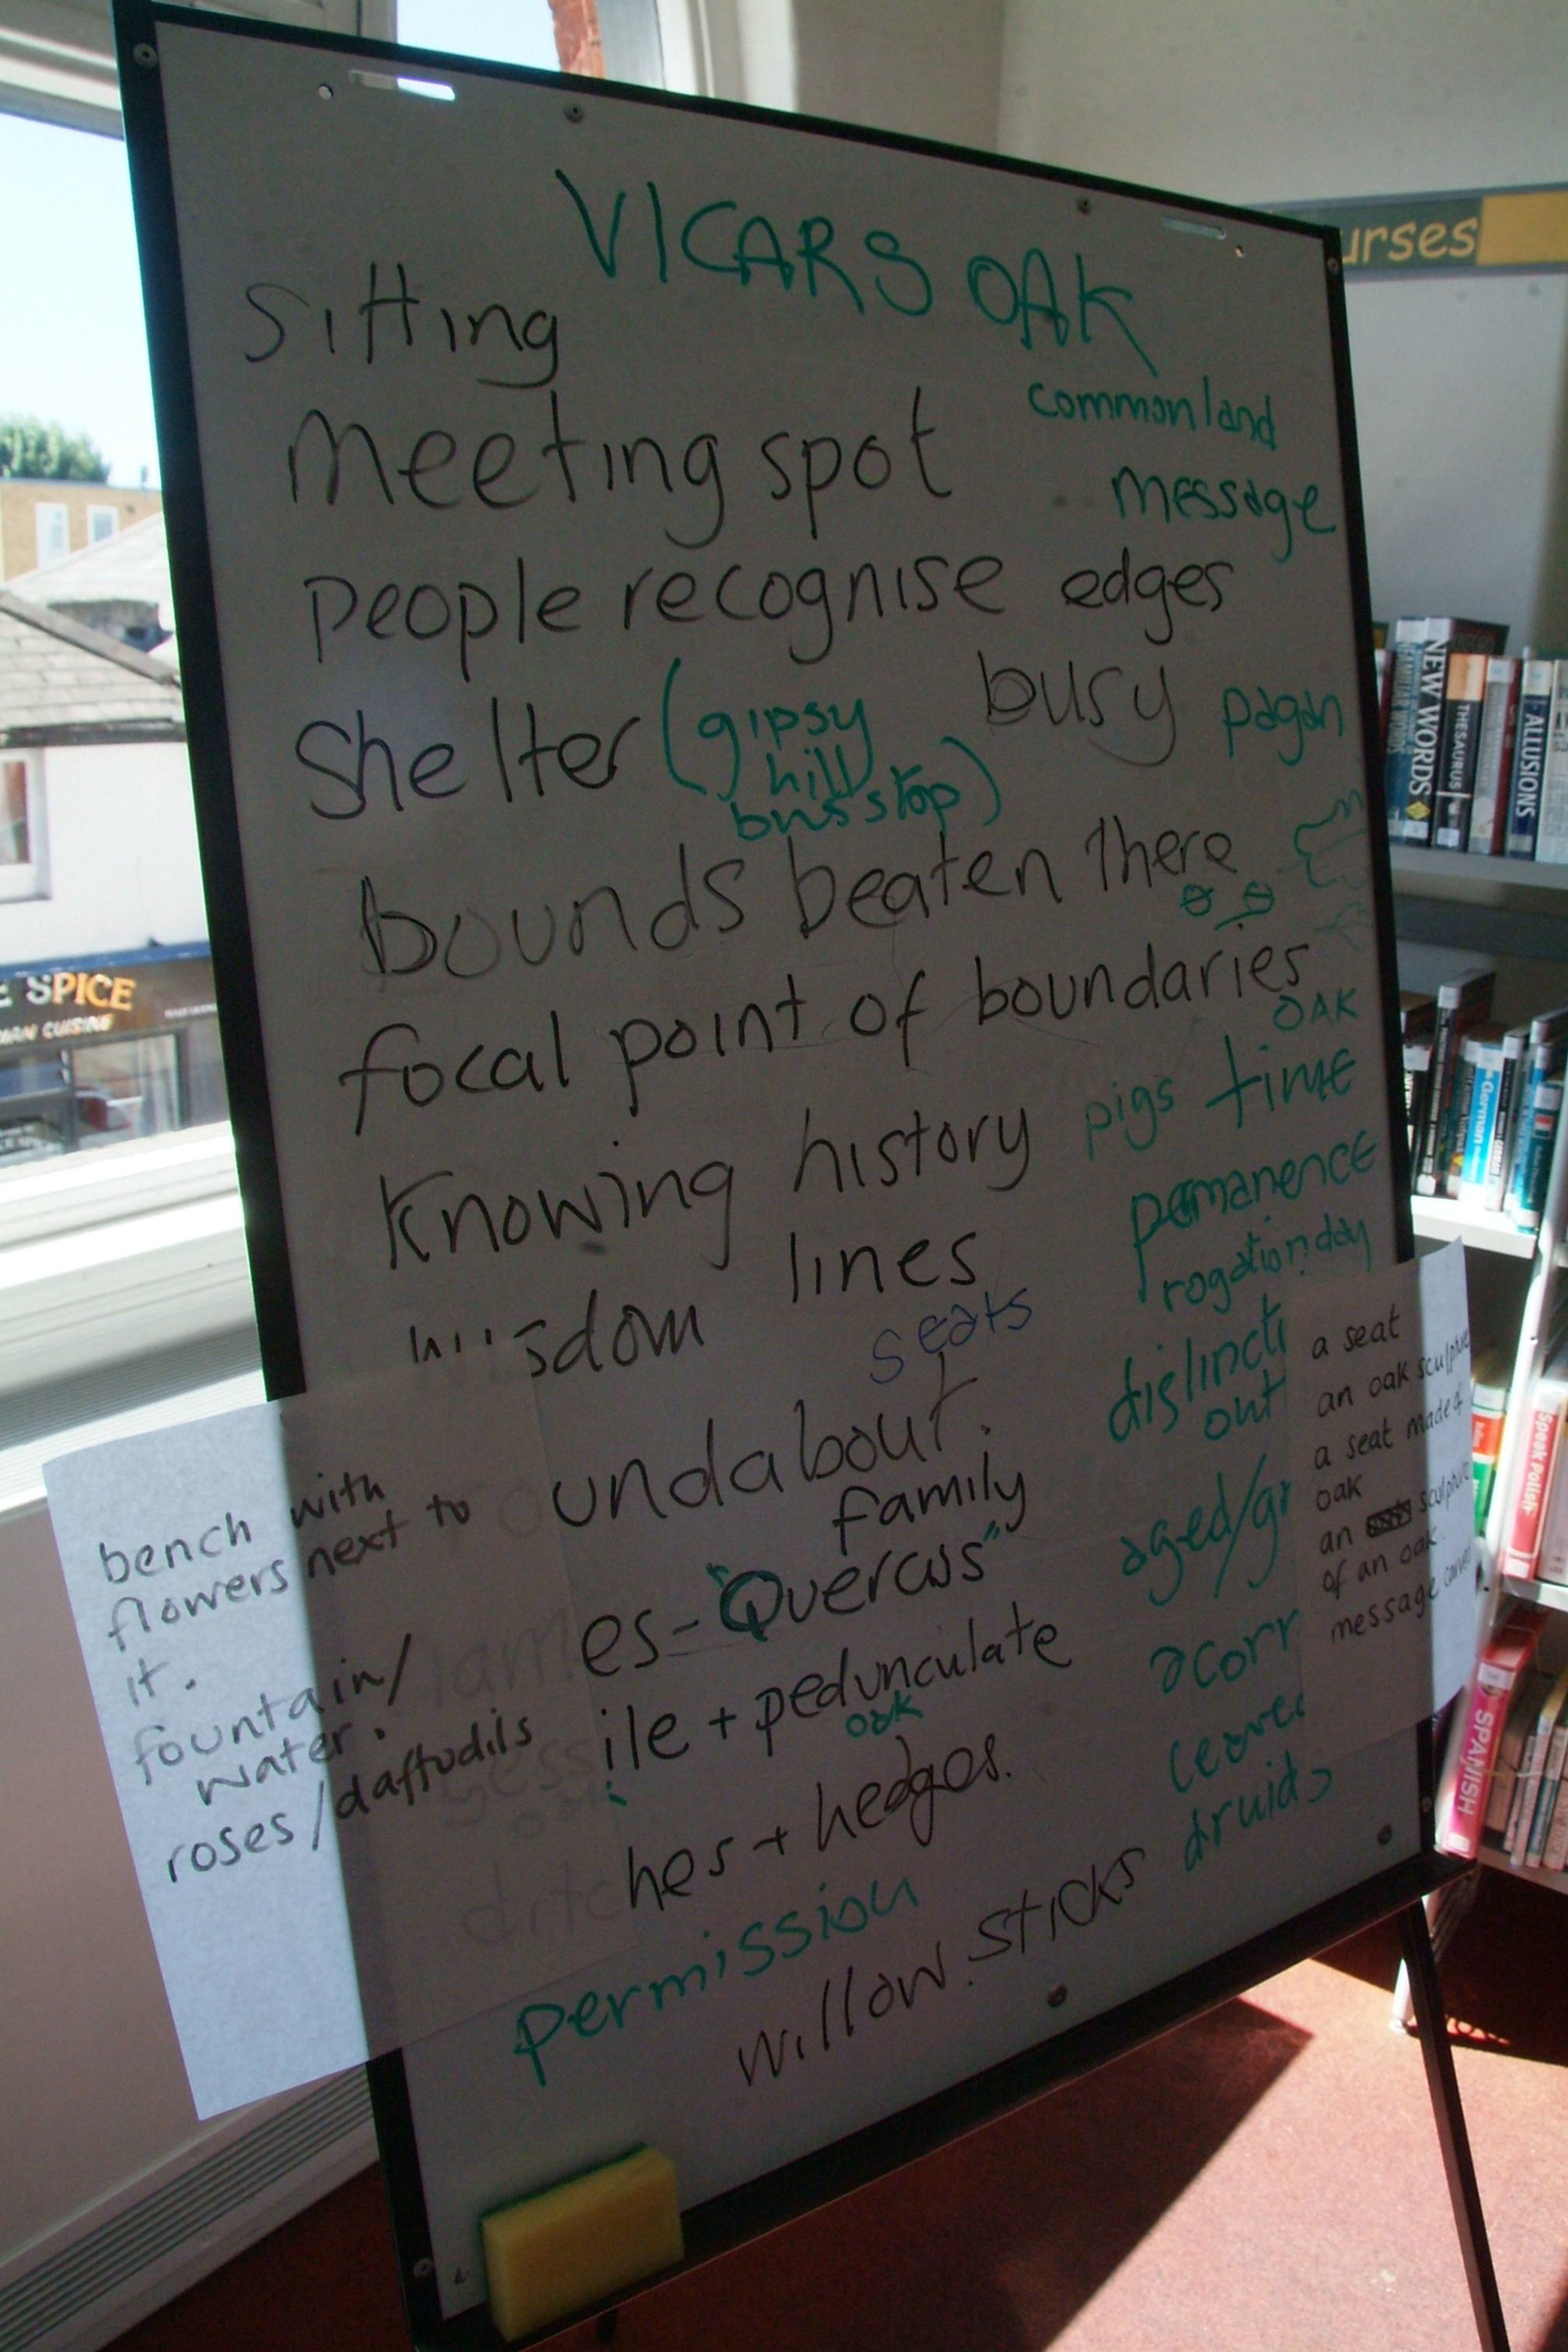 VICARS OAK
Sitting
commonland
meeting spot
message
people recognise edges
Shelter (gipsy hill bus stop) busy pagan
bounds beaten there
focal point of boundaries
OAK
Knowing history pigs time
permanence
lines
rogation day
seats
a seat
an oak sculpture
a seat made of
oak
an sculpture
of an oak.
message
out
undabout.
family
aged/gr
es - "Quercus"
ile + pedunculate
oak
hes + hedges.
druids
permission
willow sticks
bench with
flowers next to
it.
fountain/
water.
roses/daffodils
urses
SPICE
CUISINE
NEW WORDS
THESAURUS
ALLUSIONS
German
Speak Polish
SPANISH